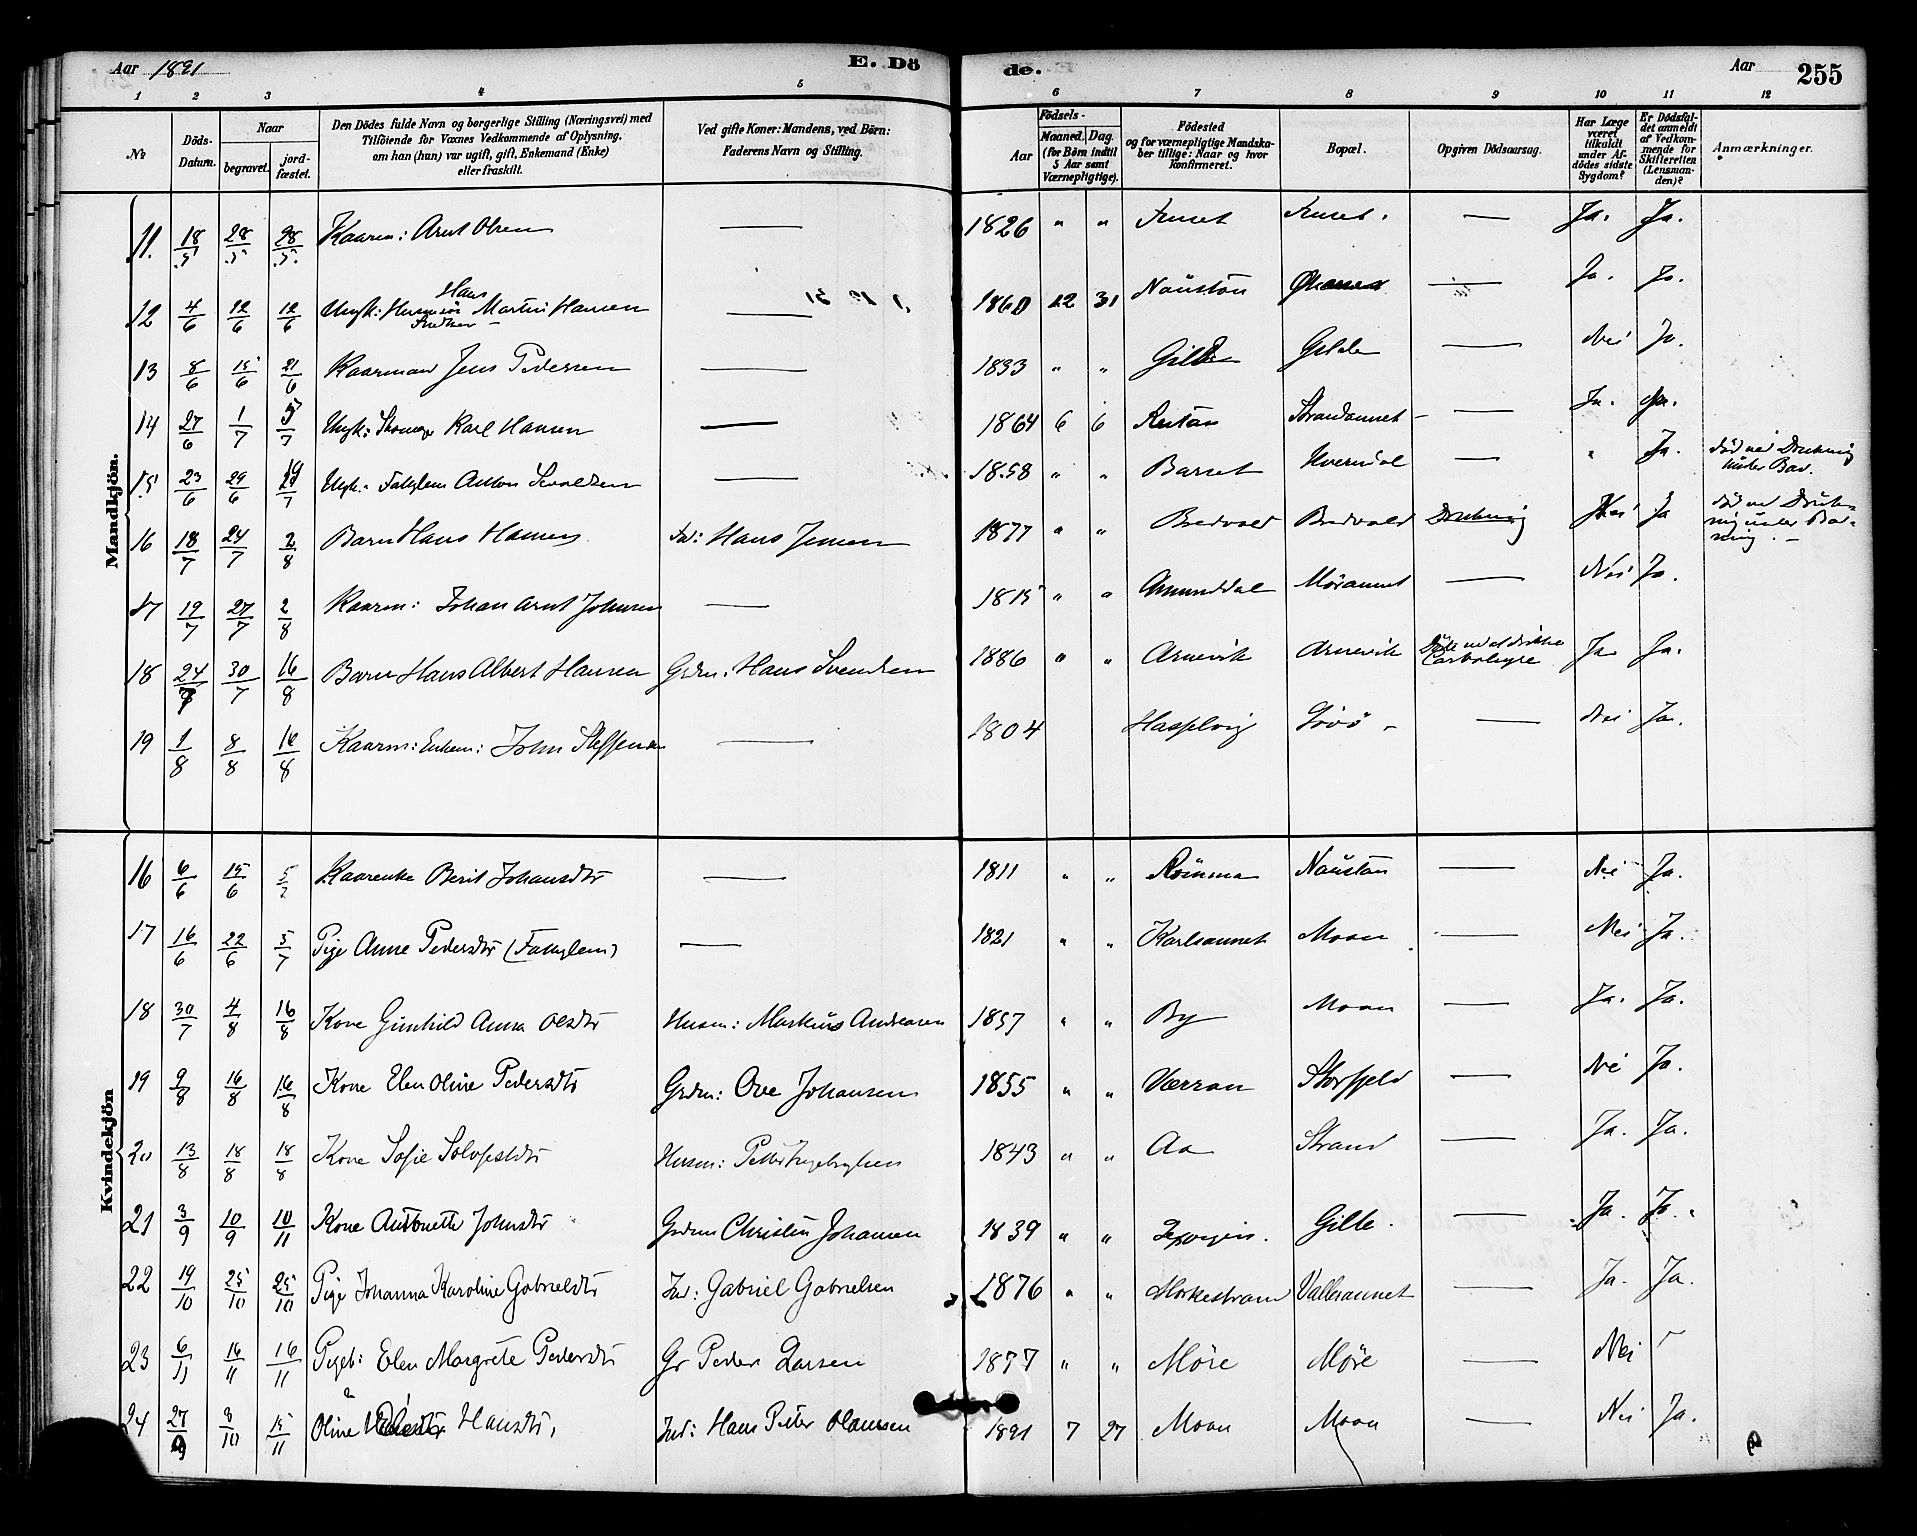 Aar 1891
E. Dö
de.
Aar
255
1 2 3 4 5 6 7 8 9 10 11 12
№
Döds-Datum.
Naar
begravet.
jord-fæstet.
Den Dödes fulde Navn og borgerlige Stilling (Næringsvei) med
Tilföiende for Voxnes Vedkommende af Oplysning,
om han (hun) var ugift, gift, Enkemand (Enke)
eller fraskilt.
Ved gifte Koner: Mandens, ved Börn:
Faderens Navn og Stilling.
Aar
Födsels-
Maaned. Dag.
(for Börn indtil
5 Aar samt
Værnepligtige).
Födested
og for værnepligtige Mandska-
ber tillige: Naar og hvor
konfirmeret.
Bopæl.
Opgiven Dödsaarsag.
Har Læge
været
tilkaldt
under Af-
dödes sidste
Sygdom?
Er Dödsfal-
det anmeldt
af Vedkom-
mende for
Skifteretten
(Lensman-
den)?
Anmærkninger.
Mandkjön.
11. 18/5 28/5 28/5 Kaarm: Arnt Olsen — 1826 " " — Ja. Ja.
12 4/6 12/6 12/6 Ungk: Hans Martin Hansen — 1860 12 31 Naustan — Ja. Ja.
13 8/6 15/6 21/6 Kaarmand Jens Pedersen — 1833 " " Gilde Gilde — Nei Ja.
14 27/6 1/7 5/7 Ungk: Karl Hansen — 1864 6 6 Strandaunet — Ja. Ja.
15 23/6 29/6 19/7 Ungk: Anton — 1858 " " Barset — " Ja. Död ved Drukning under Bad.
16 18/7 24/7 2/8 Barn Hans Hansen Ind: Hans Jensen 1877 " " Bredvold Bredvold Drukning Nei Ja Död ved Drukning under Badning. —
17 19/7 27/7 2/8 Kaarm: Johan Arnt Johnsen — 1815 " " Amunddal Möraunet — Nei Ja.
18 24/7 30/7 16/8 Barn Hans Albert Hansen Grdm: Hans Svendsen 1886 " " Arnevik Arnevik Döde ved at drikke Carbolsyre Ja Ja.
19 1/8 8/8 16/8 Kaarm: Enkem: John Steffensen — 1804 Hasselvig — Nei Ja.
Kvindekjön
16 6/6 15/6 Kaarenke Berit Johansdtr — 1811 " " Römma Naustan — Nei Ja.
17 16/6 22/6 5/7 Pige Anne Pedersdtr (Fattiglem) — 1821 " " Karlsaunet Moan — Nei Ja.
18 30/7 4/8 16/8 Kone Gunhild Anna Olsdtr Husm: Markus Andersen 1857 " " By Moan — Ja. Ja.
19 9/8 16/8 16/8 Kone Elen Oline Pedersdtr Grdm: Ove Johansen 1855 " " Værran Storfjeld — Nei Ja.
20 13/8 18/8 18/8 Kone Sofie Husm: Petter Ingebrigtsen 1843 " " Aa Strand — Ja. Ja.
21 3/9 10/9 10/11 Kone Antonette Johnsdtr Grdm Christen Johansen 1839 " " Gille. — Ja. Ja.
22 19/10 25/10 25/10 Pige Johanna Karoline Gabrielsdtr Ind: Gabriel Gabrielsen 1876 " " Morkestrand Vallersunnet — Ja. Ja.
23 6/11 16/11 16/11 Pigeb: Elen Margrete Pedersdtr Gr Peder Larsen 1877 " " Möre Möre — Nei
24 27/9 8/10 15/11 Oline Hansdtr, Ind: Hans Peter Hanssen 1891 7 27 Moan Moan Nei Ja.